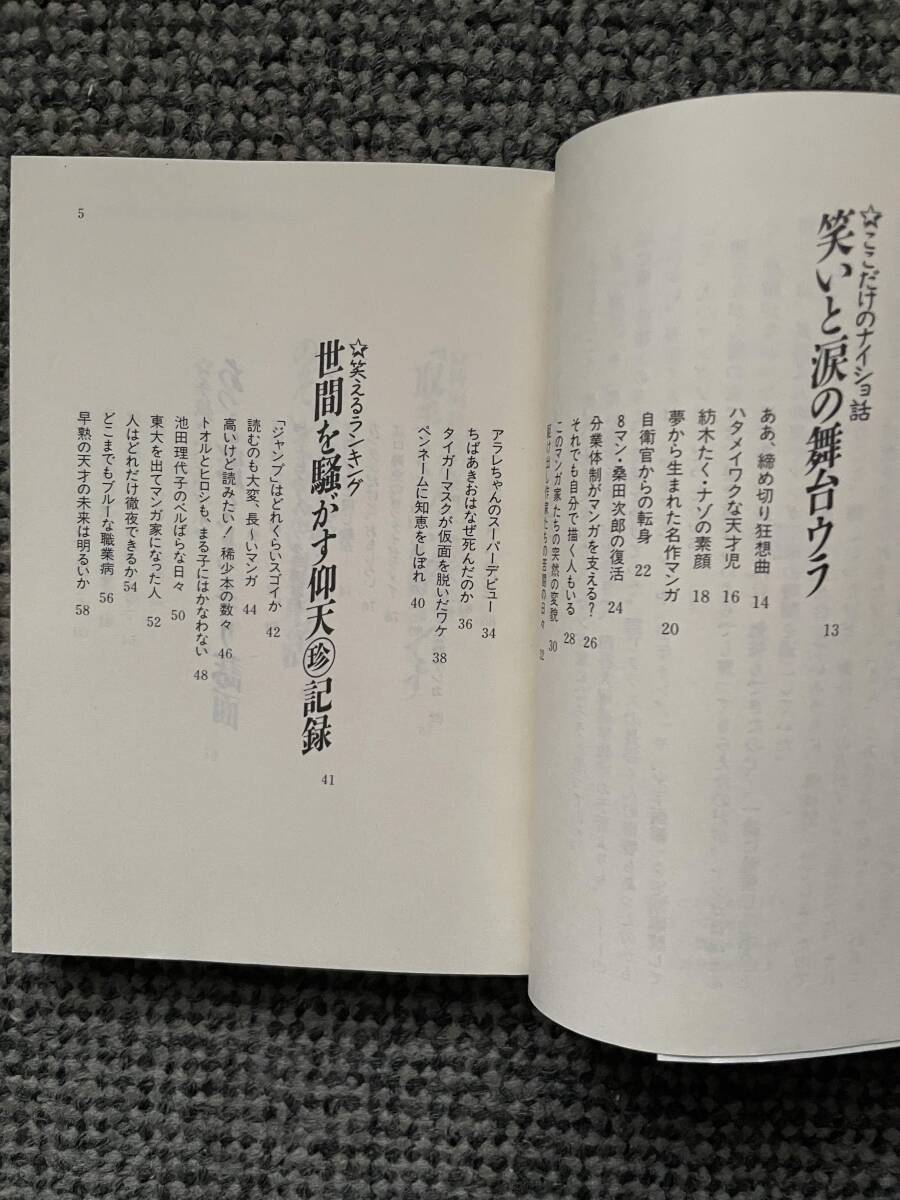 ☆ここだけのナイショ話
笑いと涙の舞台ウラ 13
ああ、締め切り狂想曲 14
ハタメイワクな天才児 16
紡木たく・ナゾの素顔 18
夢から生まれた名作マンガ 20
自衛官からの転身 22
8マン・桑田次郎の復活 24
分業体制がマンガを支える? 26
それでも自分で描く人もいる 28
このマンガ家たちの突然の変貌 30
作家たちの苦闘の日々 32
アラレちゃんのスーパーデビュー 34
ちばあきおはなぜ死んだのか 36
タイガーマスクが仮面を脱いだワケ 38
ペンネームに知恵をしぼれ 40
☆笑えるランキング
世間を騒がす仰天㊩記録 41
「ジャンプ」はどれくらいスゴイか 42
読むのも大変、長〜いマンガ 44
高いけど読みたい!稀少本の数々 46
トオルとヒロシも、まる子にはかなわない 48
池田理代子のベルばらな日々 50
東大を出てマンガ家になった人 52
人はどれだけ徹夜できるか 54
どこまでもブルーな職業病 56
早熟の天才の未来は明るいか 58
5